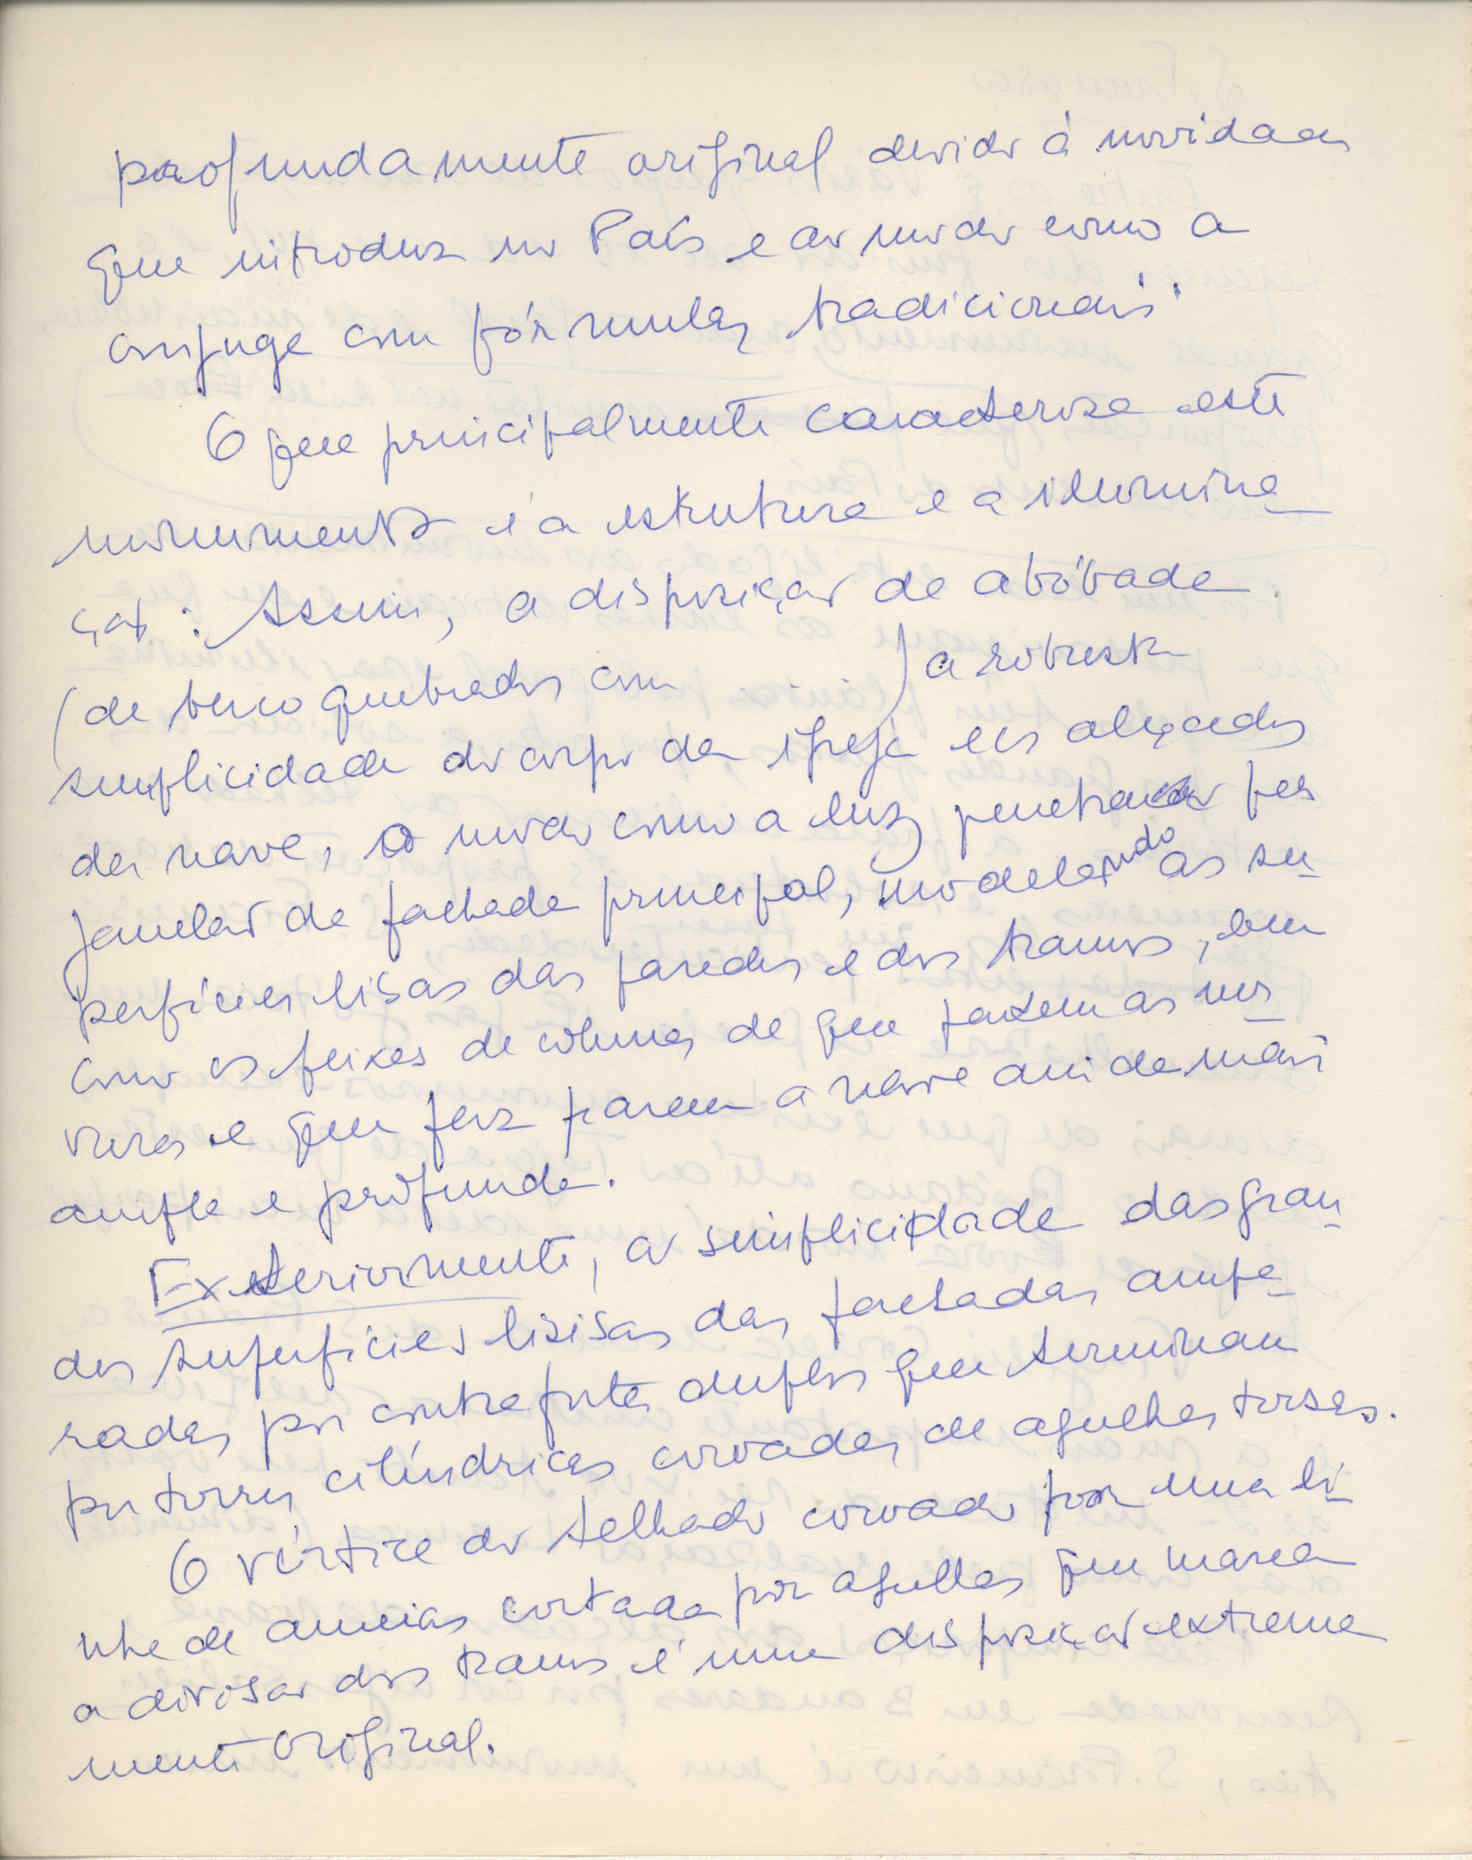 profundamente original devido à novidade
que introduz no País e ao modo como a
conjuga com fórmulas tradicionais.
O que principalmente caracteriza este
monumento é a estrutura e a ilumina
ção: Assim, a disposição de abóbada
(de berço quebrado com . . . ) a robusta
simplicidade do corpo da igreja e os alçados
da nave, o modo como a luz penetra pelas
janelas da fachada principal, modelando as su-
perfícies lisas das paredes e dos tramos, bem
como os feixes de colunas de que partem as ner-
vuras e que faz parecer a nave ainda mais
ampla e profunda.
Exteriormente, a simplicidade das gran-
des superfícies lisas das fachadas ampa-
radas por contrafortes duplos que terminam
por torres cilíndricas coroadas de agulhas torsas.
O vértice do telhado coroado por uma li-
nha de ameias cortada por agulhas que marca
a divisão dos tramos é uma disposição extrema
mente original.